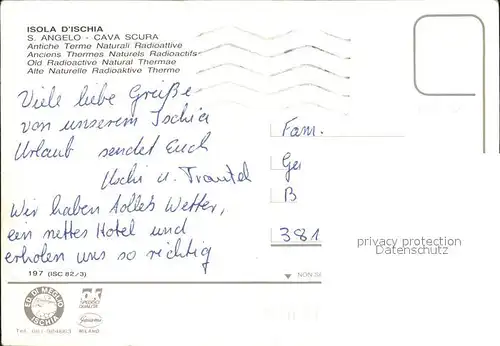 ISOLA D'ISCHIA
S. ANGELO - CAVA SCURA
Antiche Terme Naturali Radioattive
Anciens Thermes Naturels Radioactifs
Old Radioactive Natural Thermae
Alte Naturelle Radioaktive Therme
Viele liebe Grüße
von unserem Ischia
Urlaub sendet Euch
Uschi u. Trautel
Wir haben tolles Wetter,
ein nettes Hotel und
erholen uns so richtig
Fam.
Ge
B
381
privacy protection
Datenschutz
197 (ISC 82/3)
NON
ED. DI MEGLIO
ISCHIA
MILANO